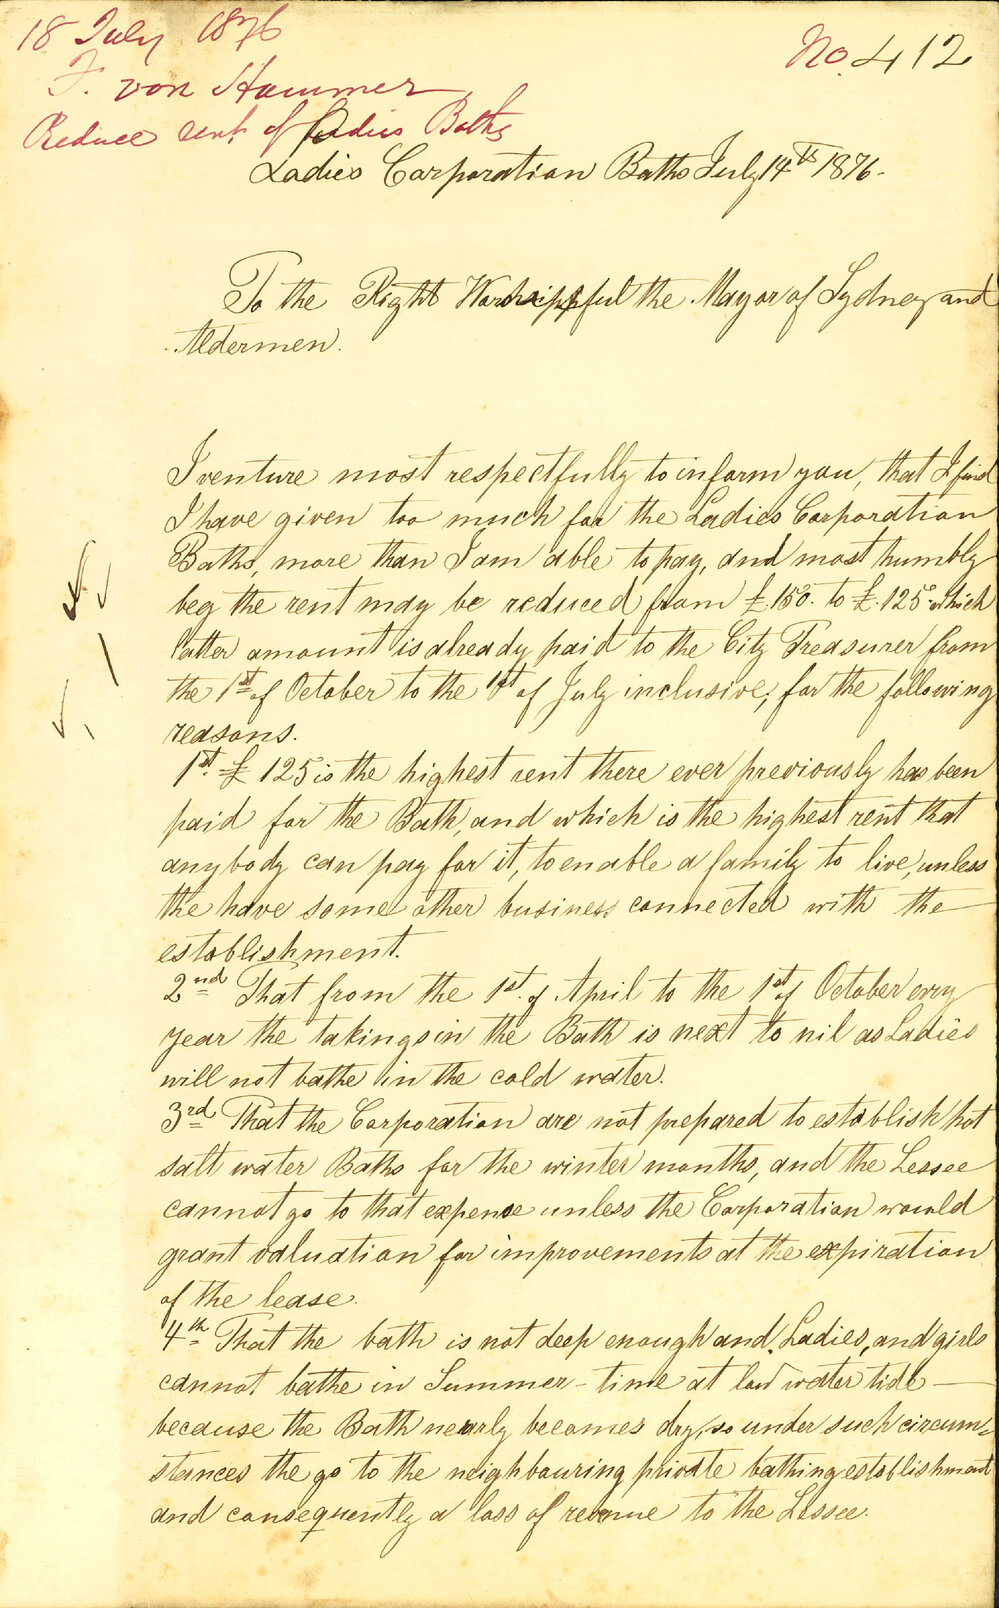 18 July 1876
No. 412
F. von Hammer
Reduce rent of Ladies Baths
Ladies Corporation Baths July 14th 1876.
To the Right Worshipful the Mayor of Sydney and
Aldermen.
I venture most respectfully to inform you, that I find
I have given too much for the Ladies Corporation
Baths, more than I am able to pay, and most humbly
beg the rent may be reduced from £.150. to £.125 which
latter amount is already paid to the City Treasurer from
the 1st of October to the 1st of July inclusive; for the following
reasons.
1st. £ 125 is the highest rent there ever previously has been
paid for the Bath, and which is the highest rent that
anybody can pay for it, to enable a family to live, unless
the have some other business connected with the
establishment.
2nd That from the 1st. of April to the 1st of October every
year the takings in the Bath is next to nil as Ladies
will not bathe in the cold water.
3rd That the Corporation are not prepared to establish hot
salt water Baths for the winter months, and the Lessee
cannot go to that expense unless the Corporation would
grant valuation for improvements at the expiration
of the lease.
4th That the bath is not deep enough and Ladies, and girls
cannot bathe in Summer-time at low water tide
because the Bath nearly becomes dry, so under such circum-
stances the go to the neighbouring private bathing establishment
and consequently a loss of revenue to the Lessee.